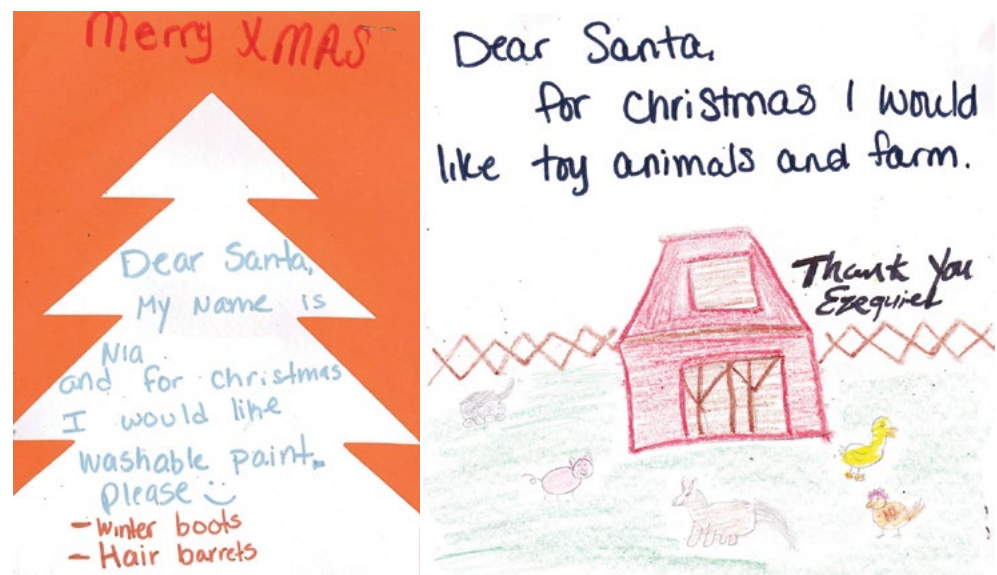 Merry XMAS
Dear Santa,
My Name is
Nia
and for christmas
I would like
washable paint.
please
- Winter boots
- Hair barrets
Dear Santa,
for christmas I would
like toy animals and farm.
Thank You
Ezequiel